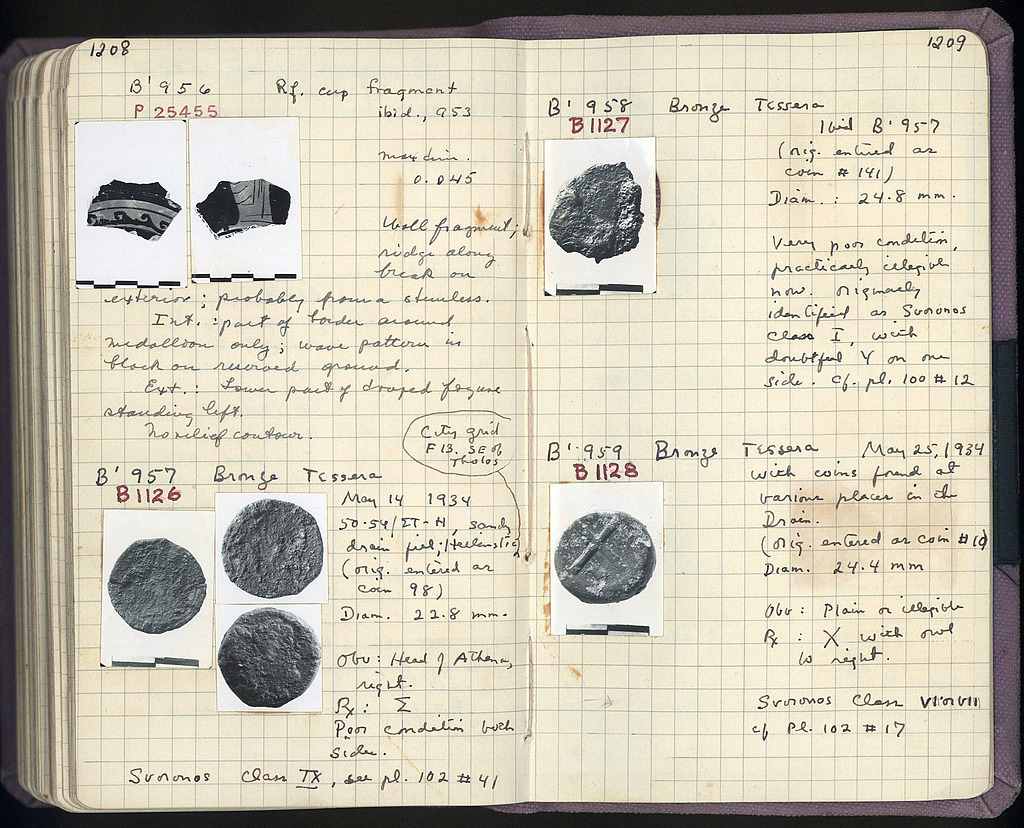 1208
B' 956 Rf. cup fragment
P 25455 ibid., 953
max dim.
0.045
Wall fragment;
ridge along
break on
exterior; probably from a stemless.
Int.: part of border around
medallion only; wave pattern in
black on reserved ground.
Ext.: Lower part of draped figure
standing left.
No relief contour.
City grid
F 13. SE of
Tholos
B' 957 Bronze Tessera
B 1126
May 14 1934
50-54/ΣΤ-Η, sandy
drain fill; Hellenistic
(orig. entered as
coin 98)
Diam. 22.8 mm.
Obv: Head of Athena,
right.
Rx: Σ
Poor condition both
sides.
Svoronos Class IX, see pl. 102 # 41
1209
B' 958 Bronze Tessera
B 1127
Ibid B' 957
(orig. entered as
coin # 141)
Diam.: 24.8 mm.
Very poor condition,
practically illegible
now. Originally
identified as Svoronos
Class I, with
doubtful Y on one
side. cf. pl. 100 # 12
B' 959 Bronze Tessera May 25, 1934
B 1128
with coins found at
various places in the
Drain.
(orig. entered as coin #10)
Diam. 24.4 mm
Obv: Plain or illegible
Rx: X with owl
to right.
Svoronos Class VI or VII
cf Pl. 102 # 17